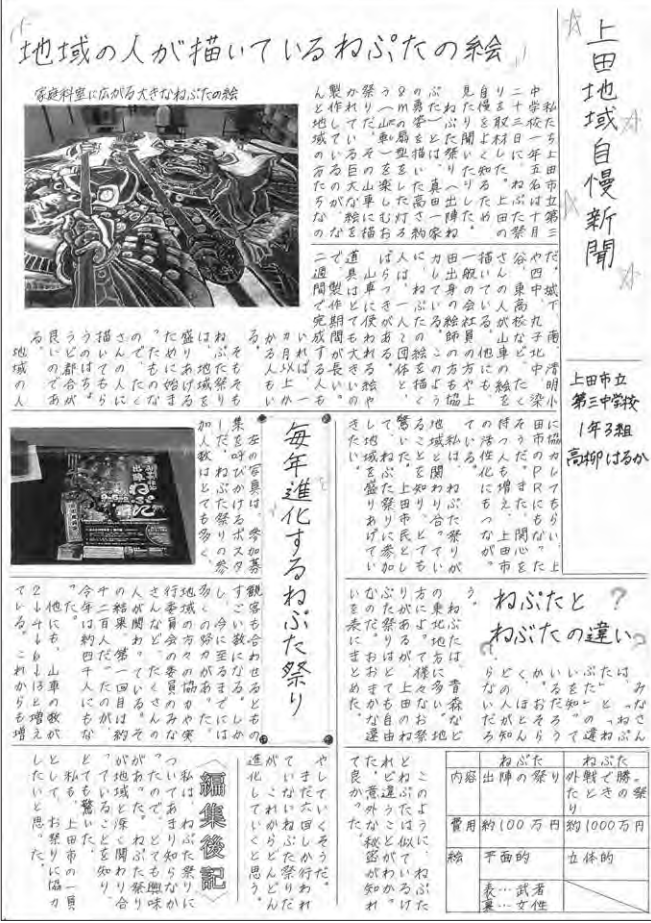 上田地域自慢新聞
上田市立
第三中学校
1年3組
高柳はるか
地域の人が描いているねぷたの絵
家庭科室に広がる大きなねぷたの絵
私たち上田市立第三
中学校一年五名は十月
二十三日に、ねぷた祭
りを取材した。上田の
自慢をよく知るため、
見たり聞いたりした。
ねぷた祭
ぷた)とは、真田一家
の勇姿を描いた高さ約
8mの扇型をした灯ろ
う(山車)を楽しむお
祭りだ。その山車に描
かれている巨大な絵を
製作しているのが、な
んと地域の方たちなの
だ。城下、南、清明小
や四中、丸子北中、染
谷、東高校など、たく
さんの人が山車の絵を
描いている。他にも、
一般の会社員の方や上
田出身の絵師の方も協
力している。このよう
に、ねぷたの絵を描く
人は、一人~団体と、
ばらつきがある。
山車に使われる絵や
道具はとても大きいの
で、製作期間が長い。
二週間で完成する人も
いれば、一
カ月以上か
かる人もい
る。
そもそも
ねぷた祭り
は、地域を
盛りあげる
ために始ま
ったものな
ので、たく
さんの人に
描いてもら
うのはちょ
うど都合が
良いのであ
る。
地域の人
に協力してもらい、上
田市のPRにもなった
そうだ。また、関心を
持つ人も増え、上田市
の活性化にもつながっ
ている。
私は、ねぷた祭りが
地域と関わり合ってい
ることを知り、とても
驚いた。上田市民とし
て、ねぷた祭りに参加
し地域を盛りあげてい
きたい。
毎年進化するねぷた祭り
左の写真は、参加募
集を呼びかけるポスタ
ーだ。ねぷた祭りの参
加人数はとても多く、
観客も合わせるともの
すごい数になる。しか
し、今に至るまでには
多くの努力があった。
地域の方々の協力や実
行委員会の委員のみな
さんなど、たくさんの
人が関わっている。そ
の結果、第一回目は約
千二百人だったのが、
今年は約四千人にもな
った。
他にも、山車の数が
2→4→6→13と増え
ている。これからも増
やしていくそうだ。
まだ六回しか行われ
ていないねぷた祭りだ
が、これからどんどん
進化していくと思う。
ねぷたと
ねぶたの違い
?
みなさん
は、「ねぷ
た」と「ね
ぶた」の違
いを知って
いるだろう
か。おそら
く、ほとん
どの人が知
らないだろ
う。
ねぶたは、青森など
の東北地方の祭り。地
方によって様々なお祭
りがあるが、上田のね
ぷた祭りはどんな違い
なのだ。おおまかな違
いを表にまとめた。
ねぷた ねぶた
内容 出陣の祭り 外戦で勝ったときの祭り
費用 約100万円 約1000万円
絵 平面的 立体的
表…武者
裏…女性
このように、ねぷた
とねぶたは似ているけ
れど違うことがわかっ
た。意外な秘密が知れ
て良かった。
〈編集後記〉
私は、ねぷた祭りに
ついてあまり知らなか
ったので、とても興味
があった。ねぷた祭り
が地域と深く関わり合
っていることを知り、
とても驚いた。
私も、上田市の一員
として、お祭りに協力
したいと思った。